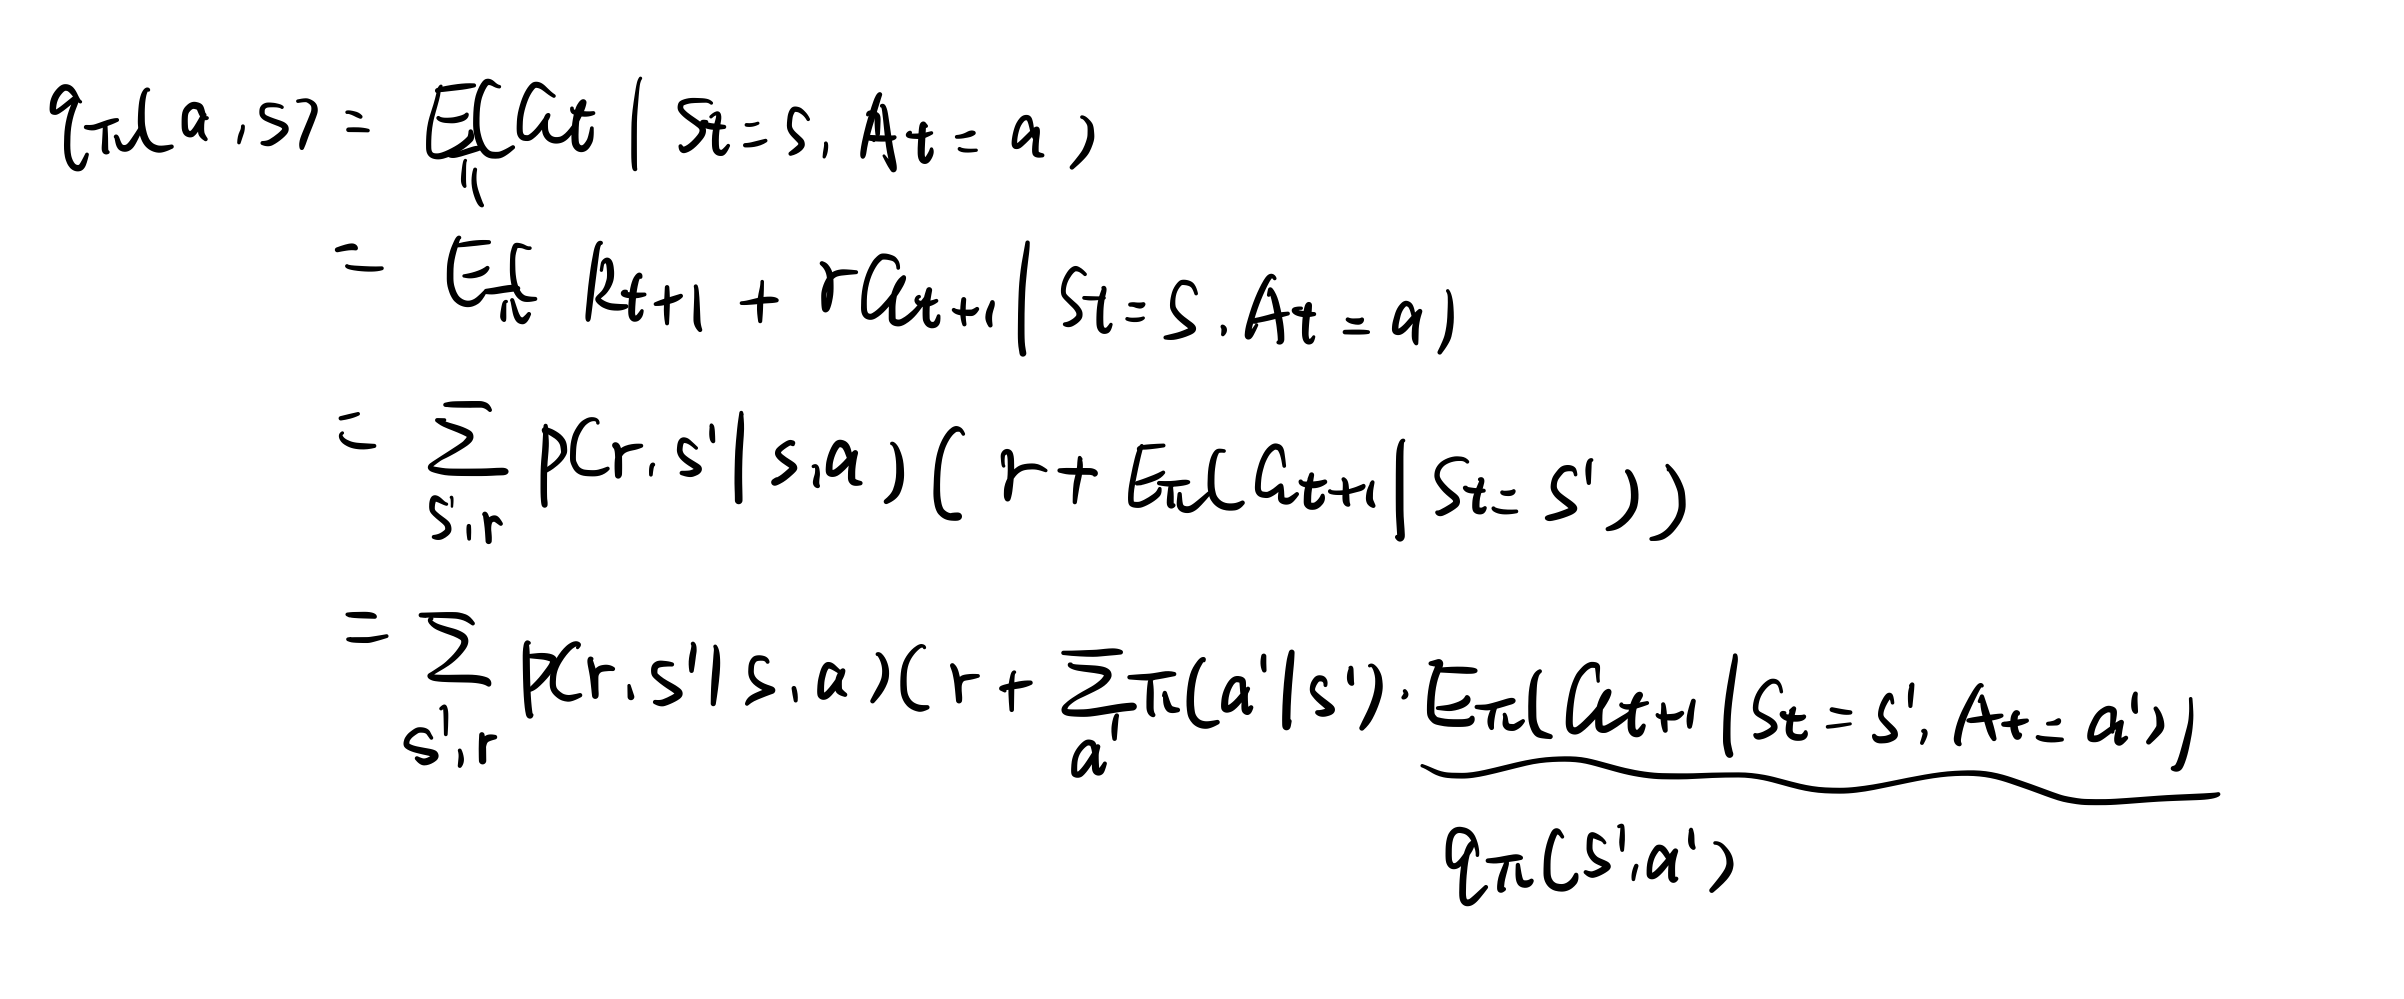 qπ(a,s) = Eπ(Gt | St=s, At=a)
= Eπ[ Rt+1 + rGt+1 | St=s, At=a)
= Σs',r p(r,s'|s,a)( r + Eπ(Gt+1 | St=s'))
= Σs',r p(r,s'|s,a)( r + Σa' π(a'|s')·Eπ(Gt+1 | St=s', At=a'))
qπ(s',a')